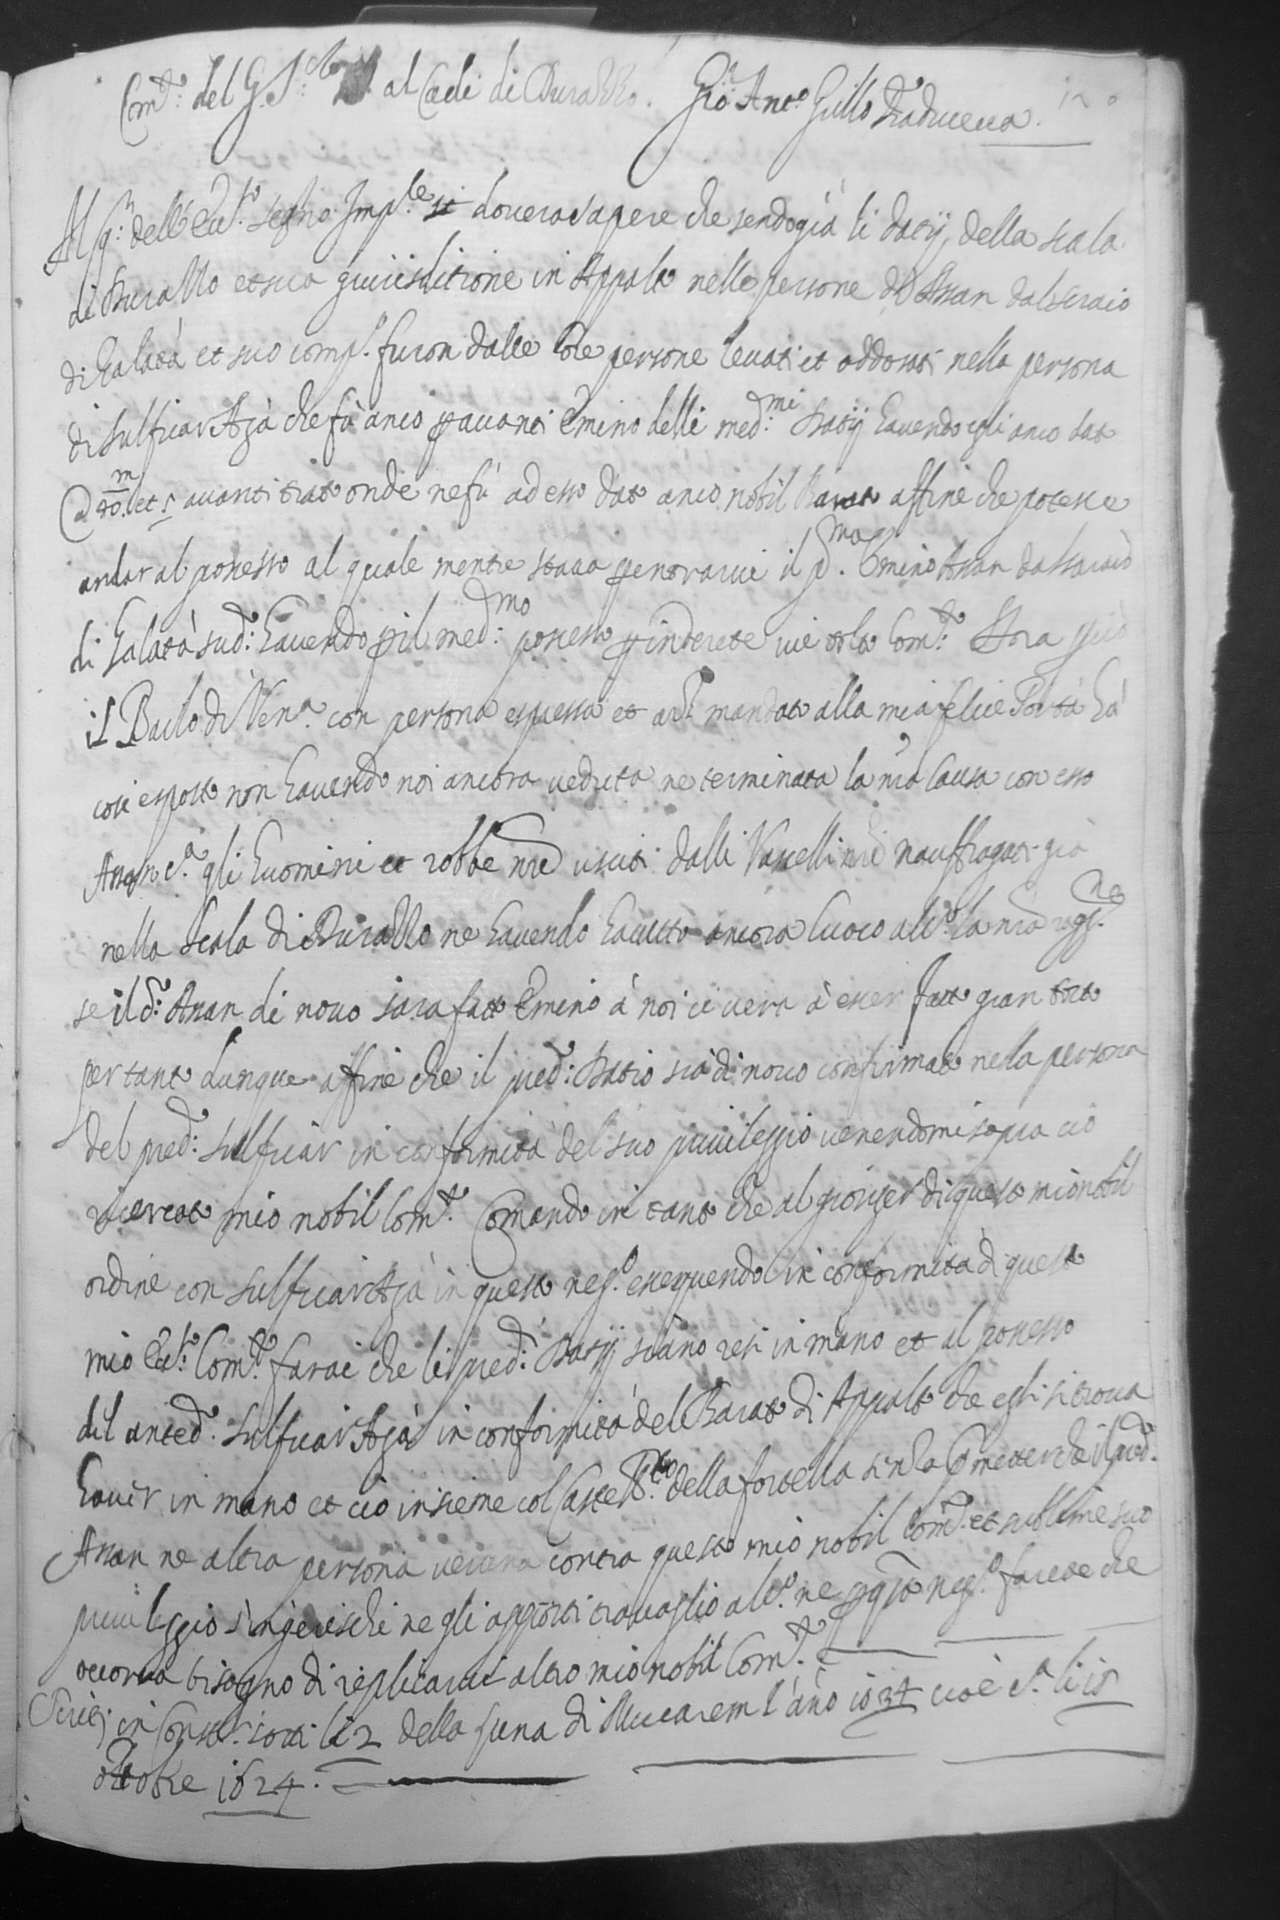 Com.to del G. S.r al Cadi di Durazzo. Gio: Ant.o Grillo traduceva.
Al g.r dell' Ecc.so segno Imp.le si doverà sapere che sendo già li datij della scala
di Durazzo et sua giurisditione in Appalto nelle persone di Assan dal seraio
di Galatà et suo comp.o furon dalle loro persone levati et addossati nella persona
di Sulficar Agà che fù anco p avanti Emino delli med.mi Datij havendo egli anco dato
et avanti trato onde ne fù ad esso dato anco nobil Barato affine che potesse
andar al possesso al quale mentre stava p entrarvi il p.mo Emino Assan dal saraio
di Galatà sud.o havendo p il med.mo possesso p indirete vie tolto Com.to Hora p ciò
il Bailo di Ven.a con persona espressa et arz mandato alla mia felice Porta hà
così esposto non havendo noi ancora veduta ne terminata la nra causa con esso
Assan c.a gli huomini et robbe nre usciti dalli Vascelli nri nauffragati già
nella scala di Durazzo ne havendo havuto ancora luoco alc.o la nra ragg.ne
se il d.o Assan di novo sarà fatto Emino à noi ci verà à esser fatto gran torto
per tanto dunque affine che il pred.o Datio sia di novo confirmato nella persona
del pred.o Sulficar in conformità del suo privileggio venendomi sopra ciò
ricercato mio nobil Com.to Comando in tanto che al gionger di questo mio nobil
ordine con Sulficar Agà in questo neg.o esequendo in conformità di questo
mio Ecc.so Com.to farai che li pred.i Datij siano resi in mano et al possesso
del anted.o Sulficar Agà in conformità del Barato di Appalto che egli si trova
haver in mano et ciò insieme col Castell.no della fortezza senza p metter che il pred.o
Assan ne altra persona veruna contra questo mio nobil Com.to et sublime suo
privileggio s'ingerischi ne gli apporti travaglio alc.o ne p q.to neg.o farete che
occorra bisogno di replicarvi altro mio nobil Com.to
Scritto in Const.li sotto li 2 della luna di Mucarem l'año 1034 cioè c.a li 15
ottobre 1624.